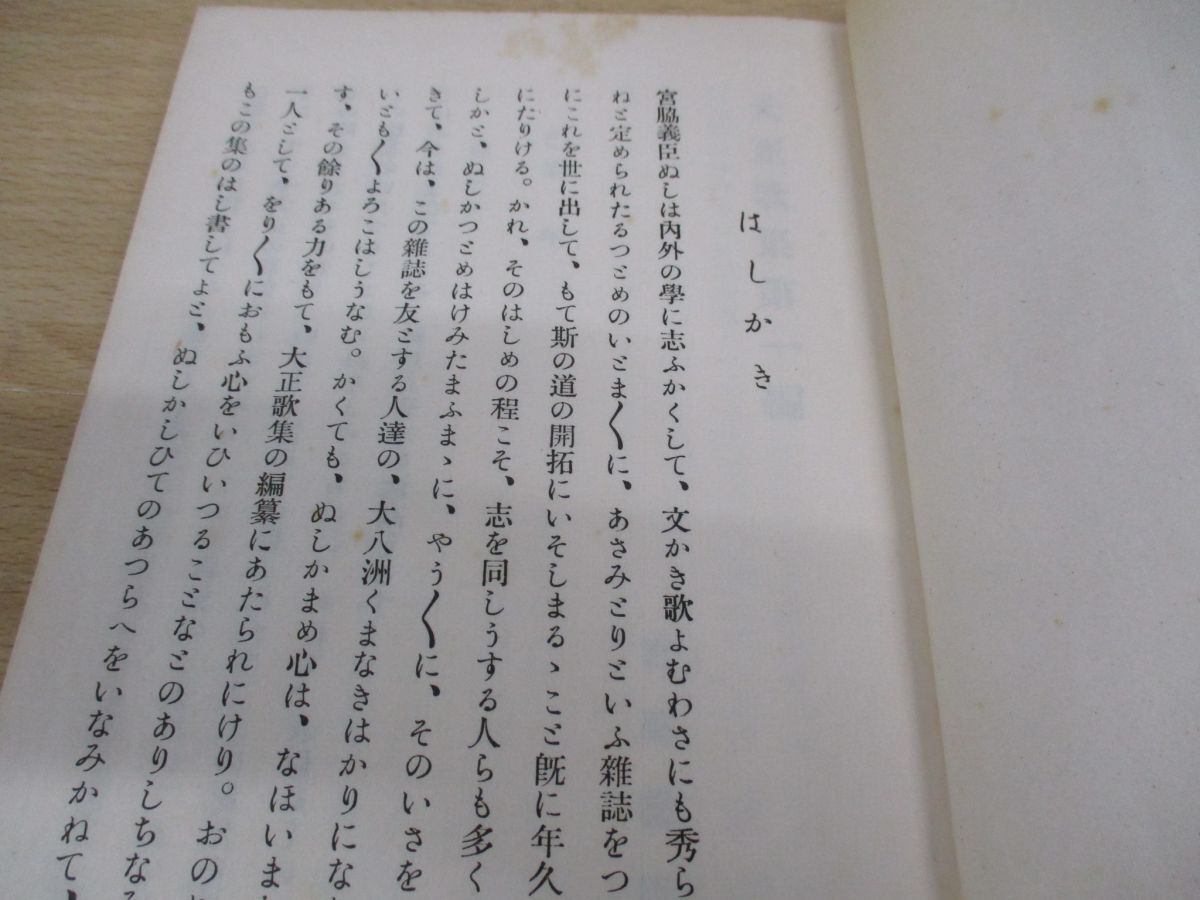 はしかき
宮脇義臣ぬしは内外の學に志ふかくして、文かき歌よむわさにも秀ら
ねと定められたるつとめのいとま〱に、あさみとりといふ雜誌をつ
にこれを世に出して、もて斯の道の開拓にいそしまるゝこと既に年久
にたりける。かれ、そのはしめの程こそ、志を同しうする人らも多く
しかと、ぬしかつとめはけみたまふまゝに、やう〱に、そのいさを
きて、今は、この雜誌を友とする人達の、大八洲くまなきはかりにな
いとも〱よろこはしうなむ。かくても、ぬしかまめ心は、なほいま
す、その餘りある力をもて、大正歌集の編纂にあたられにけり。おの
一人として、をり〱におもふ心をいひいつることなとのありしちな
もこの集のはし書してよと、ぬしかしひてのあつらへをいなみかねて